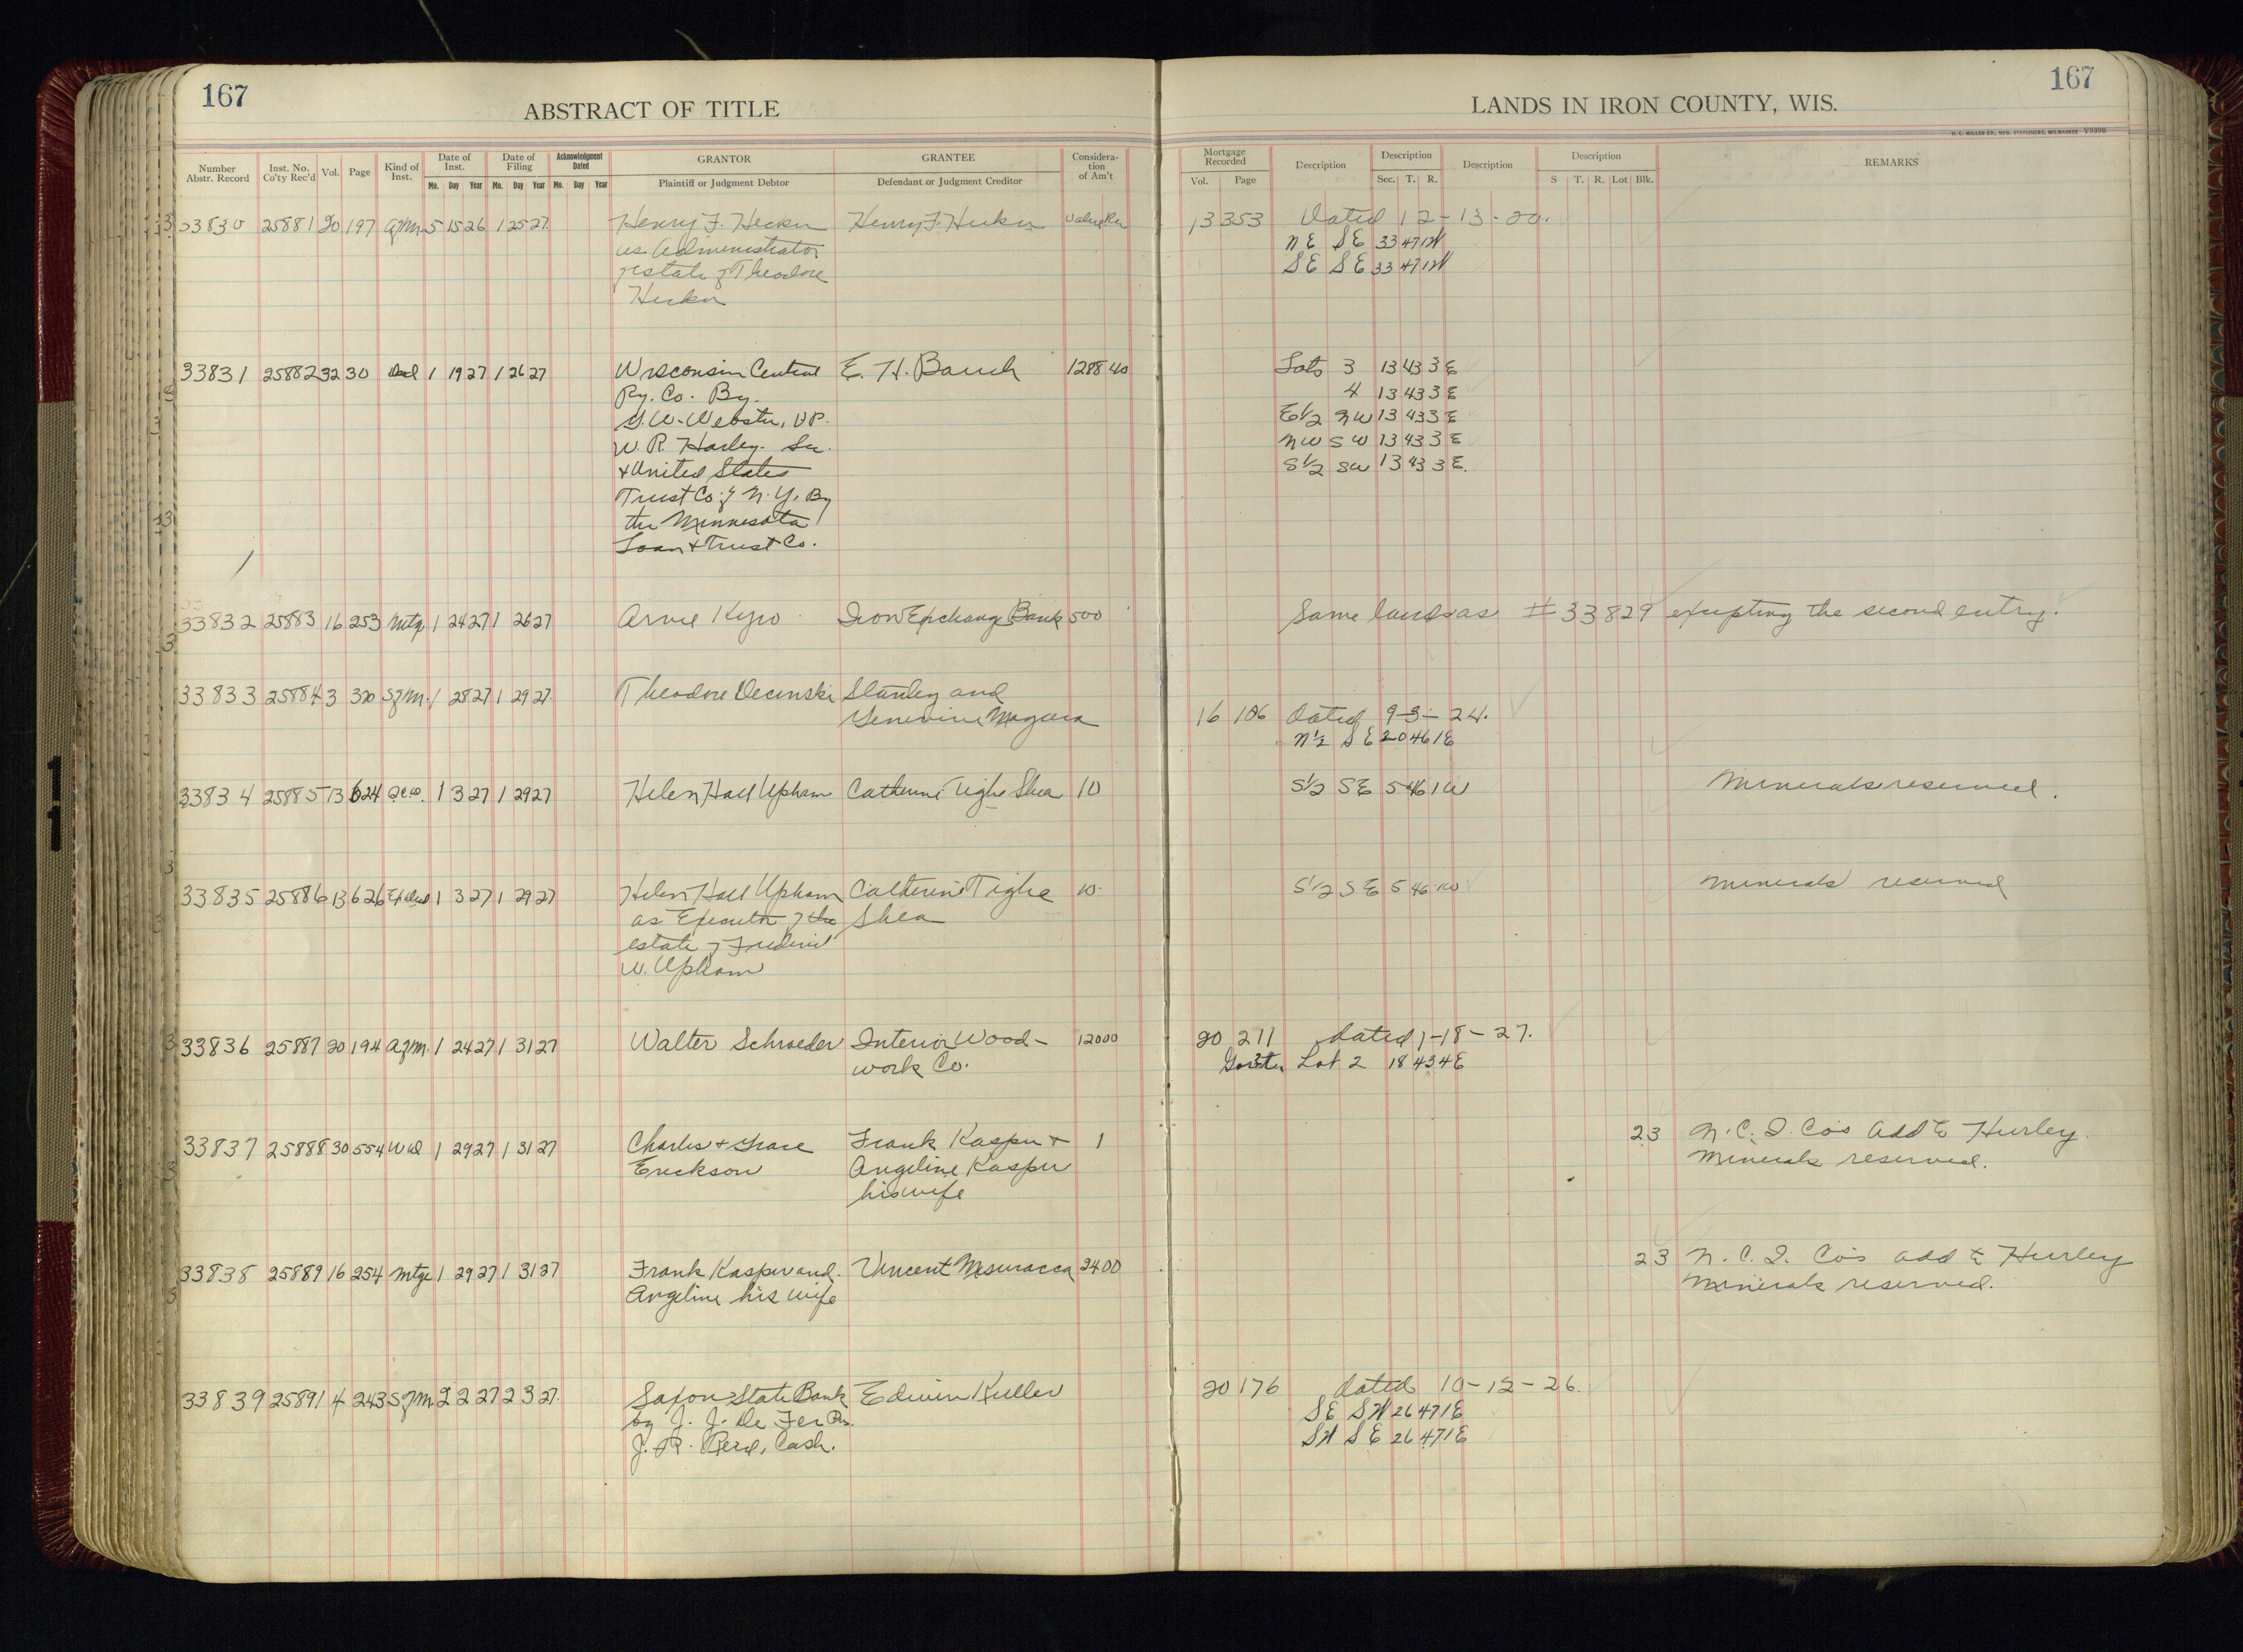 167
ABSTRACT OF TITLE
LANDS IN IRON COUNTY, WIS.
167
H. C. MILLER CO., MFG. STATIONERS, MILWAUKEE Y9398
Number Abstr. Record | Inst. No. Co'ty Rec'd | Vol. | Page | Kind of Inst. | Date of Inst. Mo. Day Year | Date of Filing Mo. Day Year | Acknowledgment Dated Mo. Day Year | GRANTOR Plaintiff or Judgment Debtor | GRANTEE Defendant or Judgment Creditor | Consideration of Am't | Mortgage Recorded Vol. Page | Description | Description Sec. T. R. | Description | Description S T. R. Lot Blk. | REMARKS
33830 25881 20 197 Agm 5 15 26 1 25 27 Henry F. Hecker Henry F. Hecker Value Rec 13 353 Dated 12-13-20.
as Administrator NE SE 33 47 1W
estate of Theodore SE SE 33 47 1W
Hecker
33831 25882 32 30 Deed 1 19 27 1 26 27 Wisconsin Central E. H. Bauch 1288 40 Lots 3 13 43 3 E
Ry. Co. By. 4 13 43 3 E
G.W. Webster, VP. E1/2 NW 13 43 3 E
W. R. Harley. Sec. NW SW 13 43 3 E
& United States S1/2 SW 13 43 3 E.
Trust Co. of N.Y. By
the Minnesota
Loan & Trust Co.
33832 25883 16 253 Mtg 1 24 27 1 26 27 Arvie Kyro Iron Exchange Bank 500 Same lands as #33829 excepting the second entry.
33833 25884 3 320 Sgm. 1 28 27 1 29 27 Theodore Decinski Stanley and
Genevive 16 106 Dated 9-3-24.
N1/2 SE 20 46 1E
33834 25885 13 624 QCD. 1 3 27 1 29 27 Helen Hall Upham Catherine Tighe Shea 10 S1/2 SE 5 46 1W Minerals reserved.
33835 25886 13 626 Ex deed 1 3 27 1 29 27 Helen Hall Upham Catherine Tighe 10. S1/2 SE 5 46 1W Minerals reserved
as Executor of the Shea
estate of Frederic
W. Upham
33836 25887 20 194 Agm. 1 24 27 1 31 27 Walter Schroeder Interior Wood- 12000 20 211 dated 1-18-27.
work Co. Lot 2 18 43 4E
33837 25888 30 554 WD 1 29 27 1 31 27 Charles & Grace Frank Kasper & 1 23 N.C.I. Co's Add to Hurley.
Erickson Angeline Kasper Minerals reserved.
his wife
33838 25889 16 254 Mtge 1 29 27 1 31 27 Frank Kasper and. Vincent Msuracca 2400 23 N.C.I. Co's add to Hurley
Angeline his wife Minerals reserved.
33839 25891 4 243 Sgm 2 2 27 2 3 27. Saxon State Bank Edwin Kuller 20 176 dated 10-12-26.
by J. J. De Fer Pr. SE SW 26 47 1E
J. R. Reid, Cash. SW SE 26 47 1E